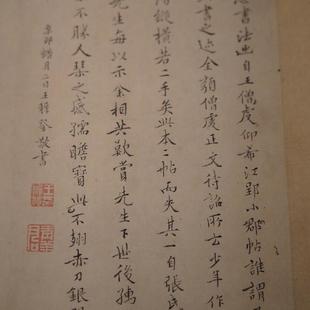 書法迺自王僧虔仰希江郢小郗帖誰謂
書之迹全類僧虔正文待詔所云少年作
縱橫若二手矣與本二帖而失其一自張氏
先生每以示余相共歎賞先生下世後孺
不勝人琴之感孺瞻寶此不翅赤刀銀
辛卯臈月二日王穉登敬書